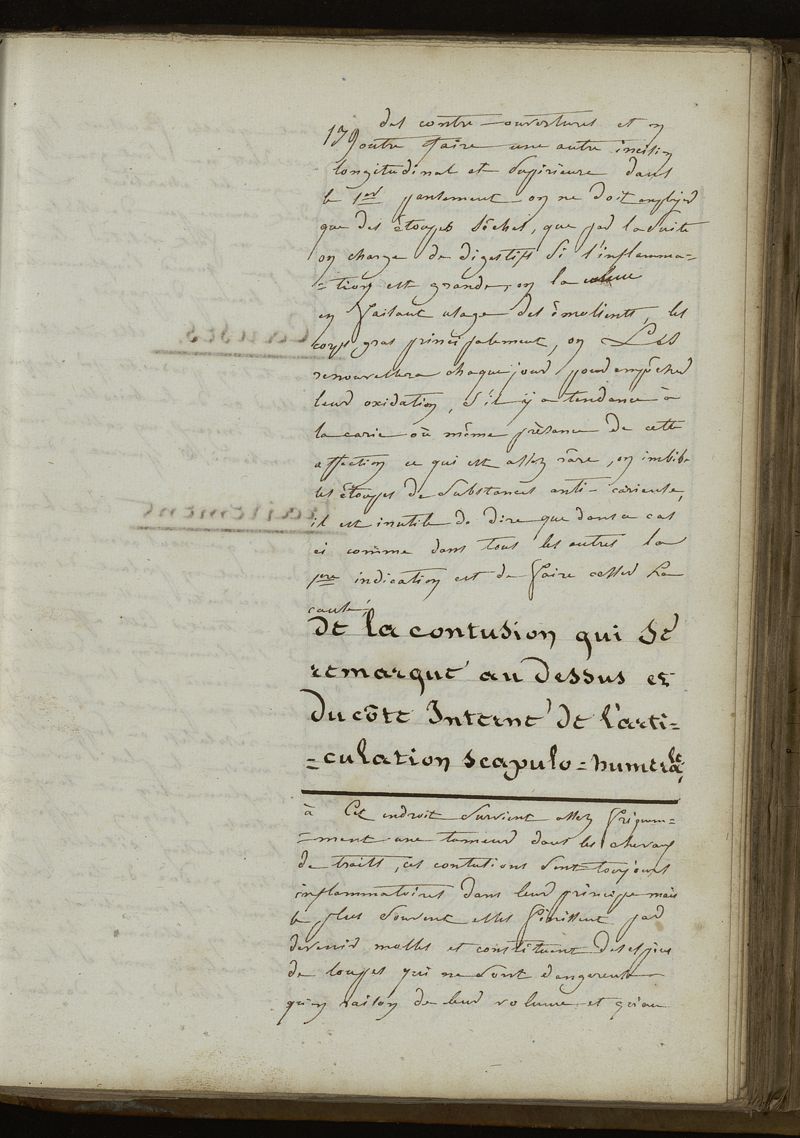 179 des contre-ouvertures et en
outre faire une autre incision
longitudinal et supérieure dans
le 1er pansement on ne doit employer
que des étoupes sêches, que par la suite
on charge de digestifs si l'inflamma-
-tion est grande, on la calme
en faisant usage des émolients, les
corps gras principalement, on Les
renouvellera chaque jour pour empêcher
leur oxidation, s'il y a tendance à
la carie où même présance de cette
affection ce qui est assez râre, on imbibe
les étoupes de substances anti-carieuse,
il est inutile de dire que dans ce cas
ci comme dans tous les autres la
1ere indication est de faire cesser La
cause,
De la contusion qui se
remarque au dessus et
Du côte Interne de l'arti-
-culation scapulo-humerale,
à Cet endroit survient assez fréquem-
-ment une tumeur dans les chevaux
de traits, ces contusions sont toujours
inflammatoires dans leur principe mais
le plus souvent elles finissent par
devenir molles et constituent des espèces
de loupes qui ne sont dangereuse
qu'en raison de leur volume et qu'au
Causes.
Traitement